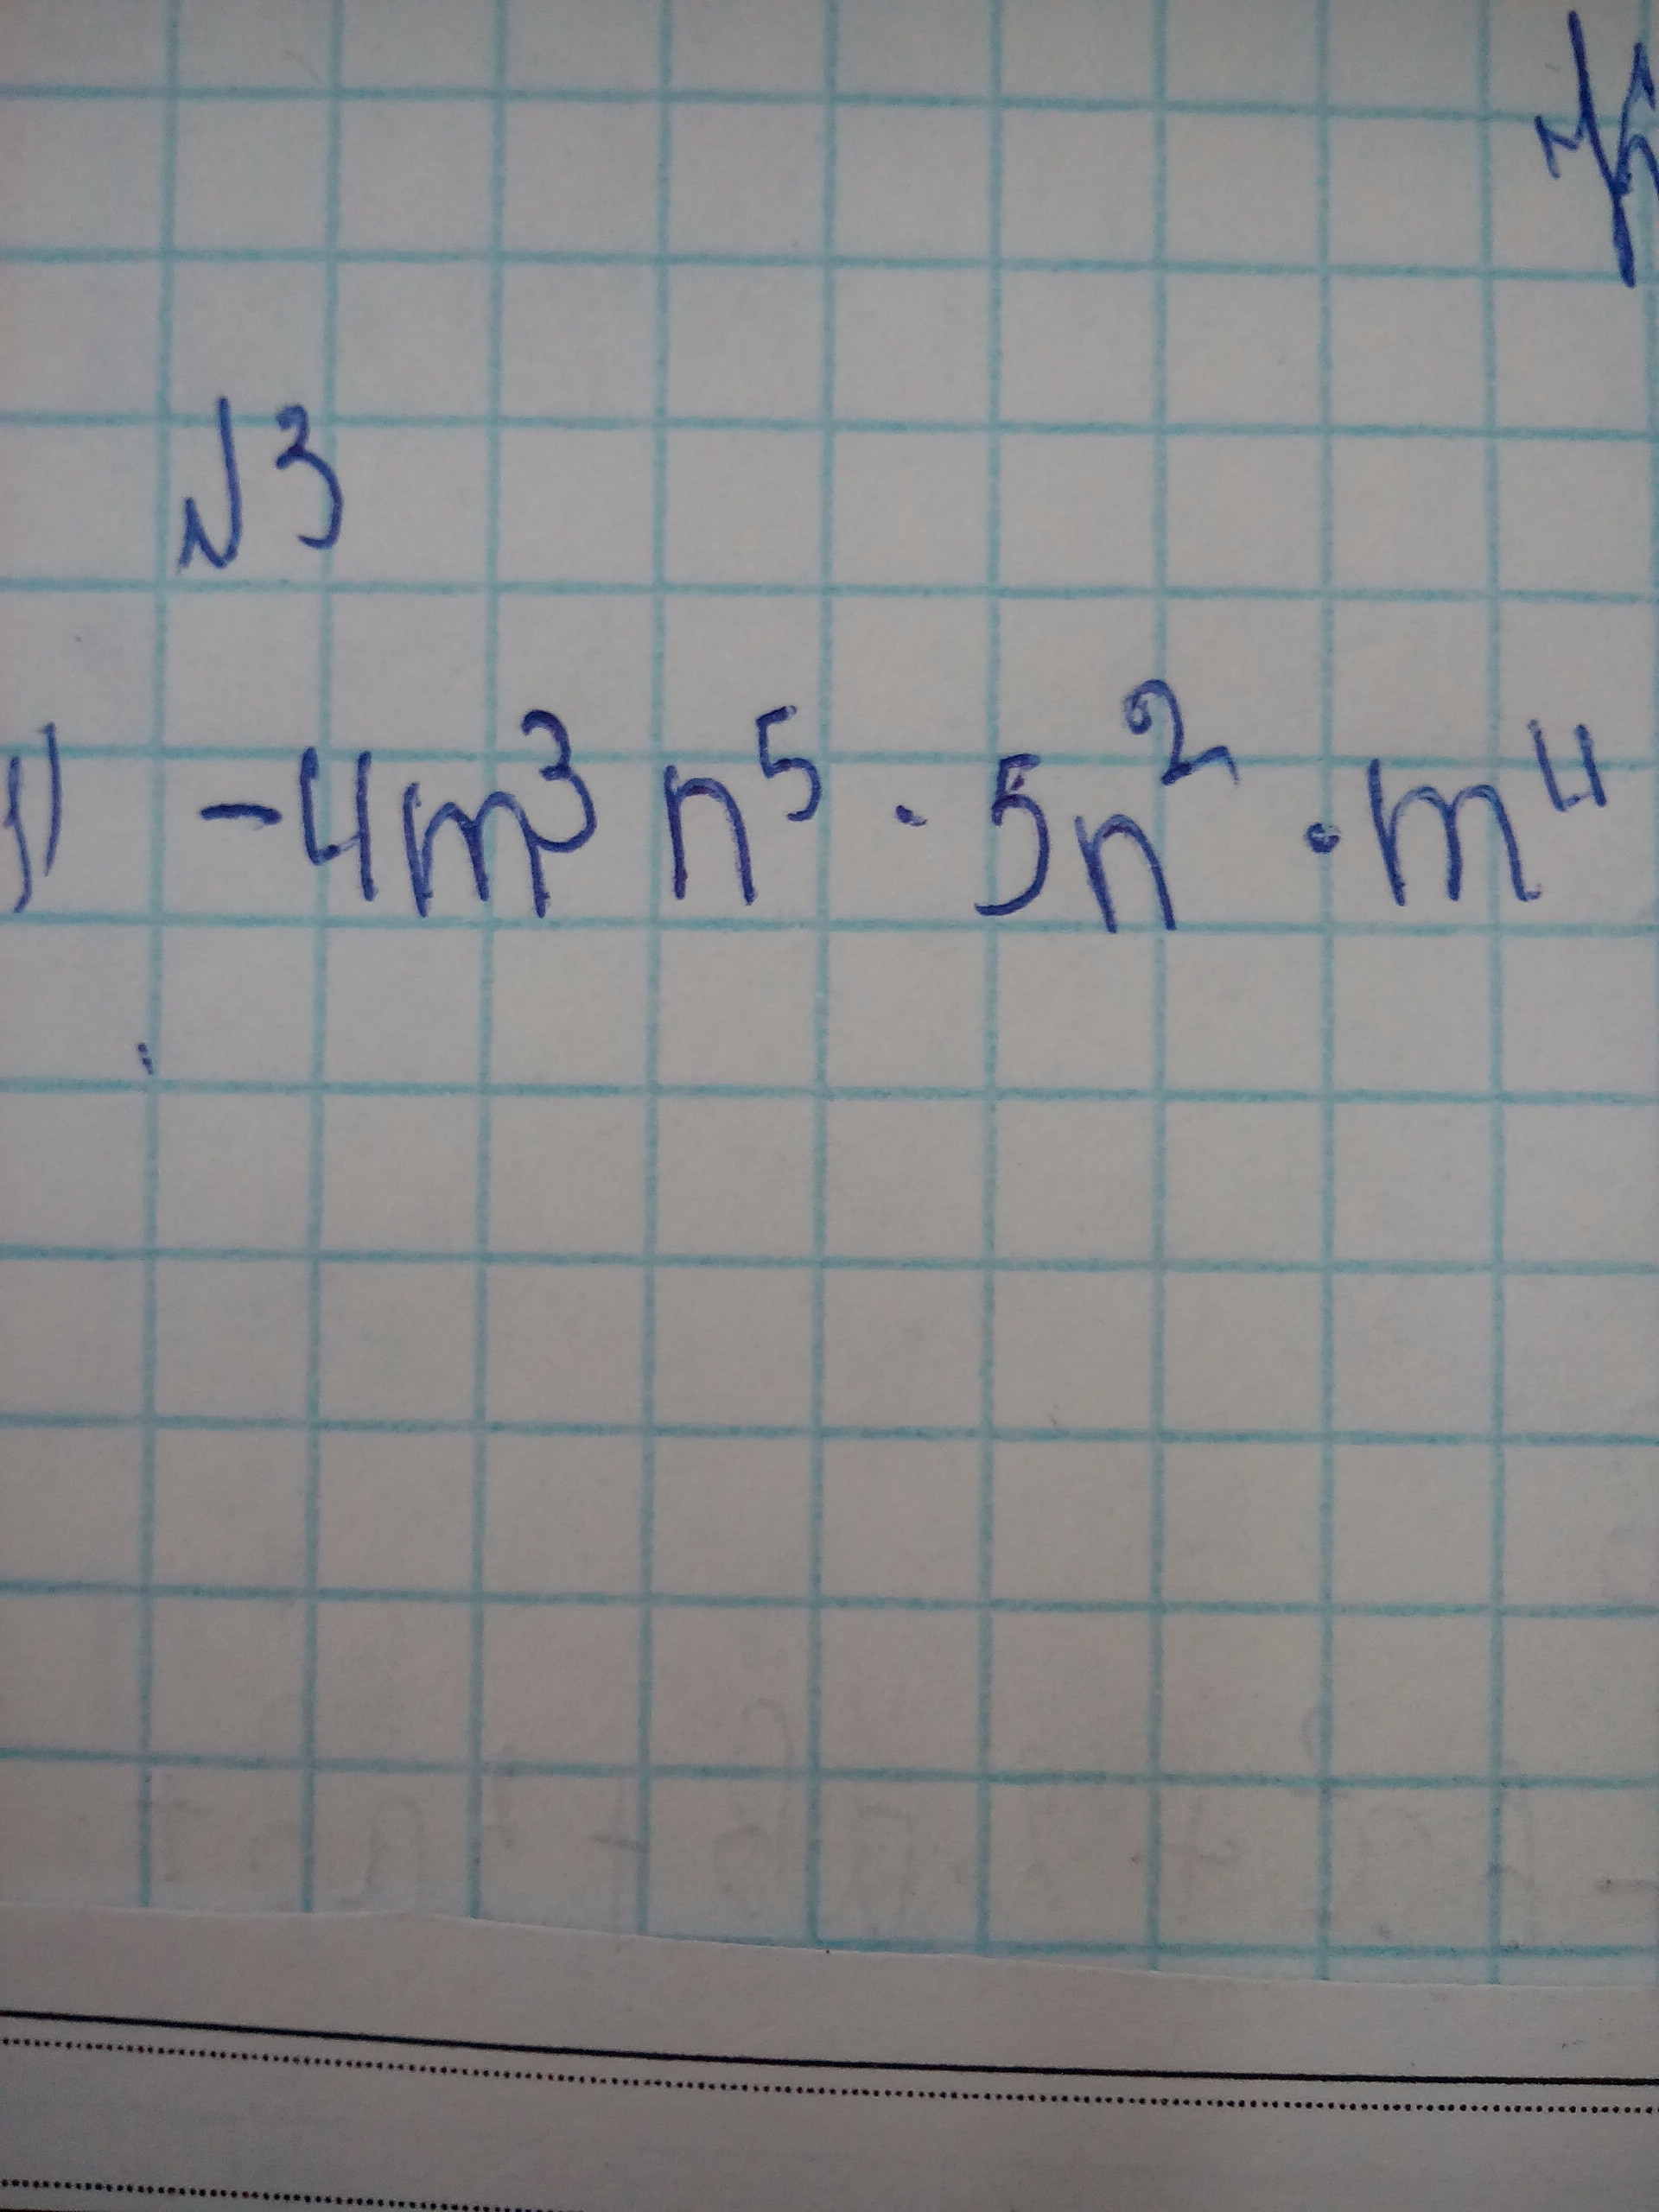 №3
1) -4m³ n⁵ · 5n² · m⁴